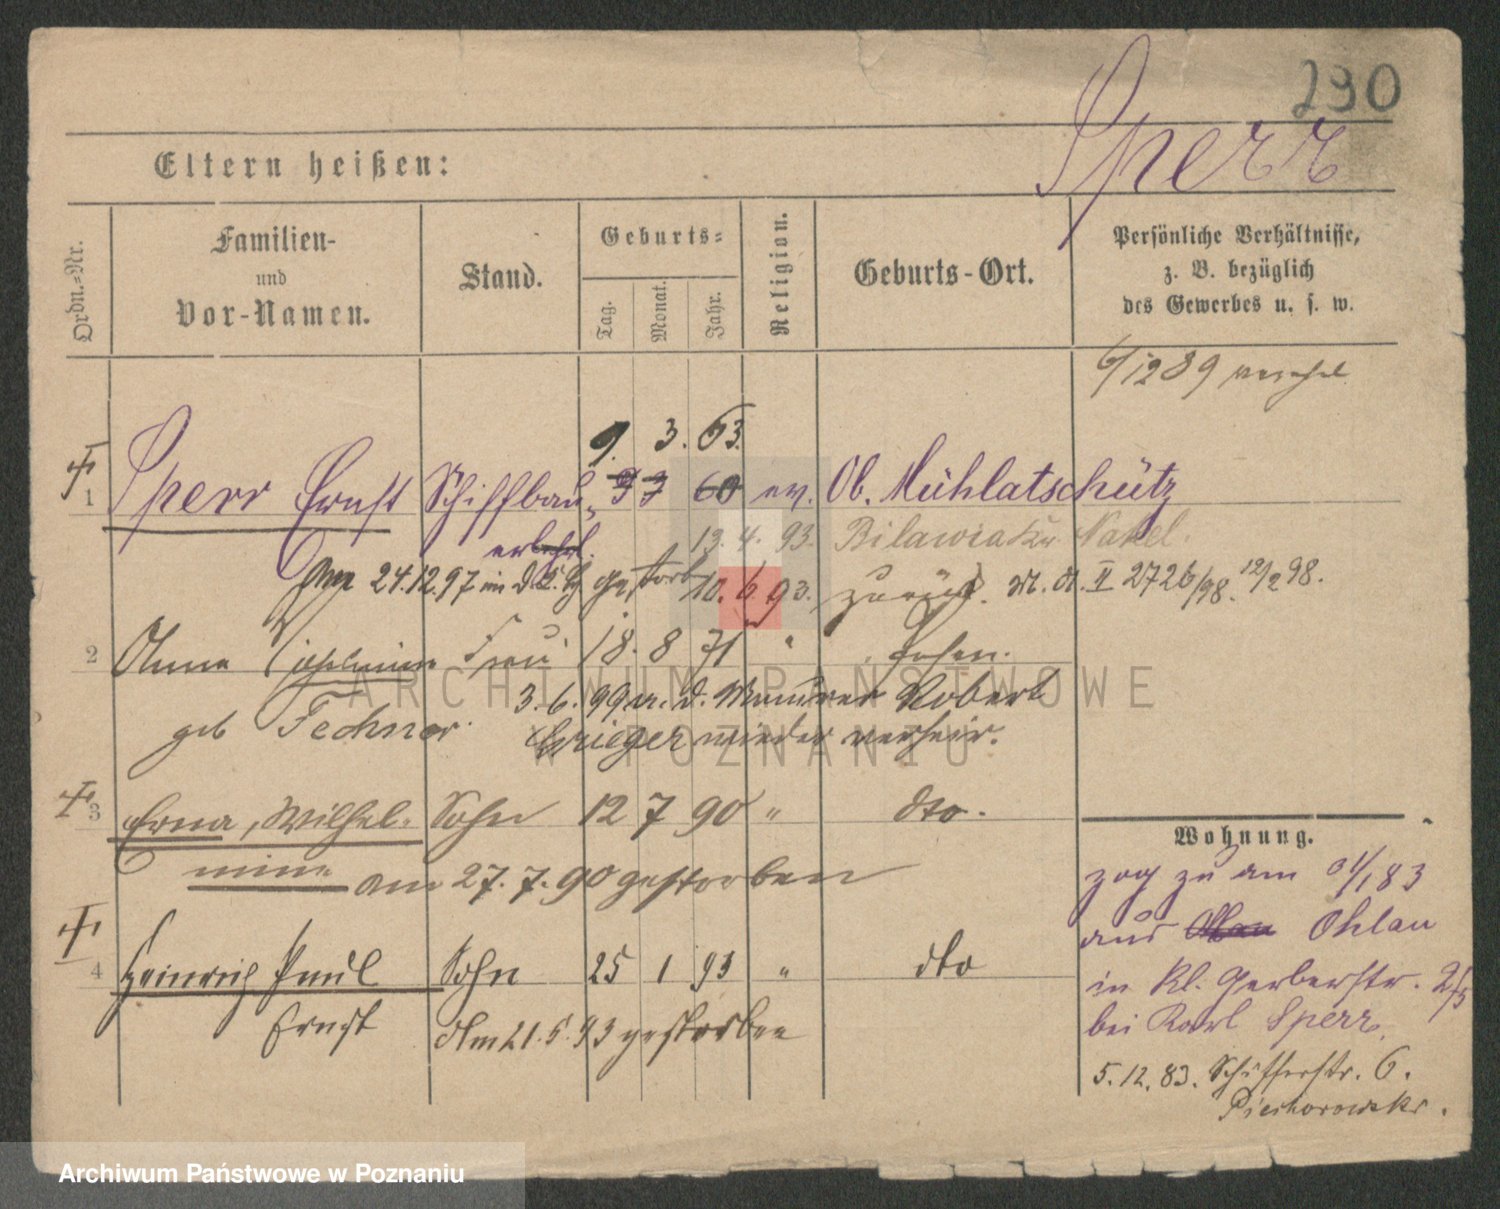 290
Sperr
Eltern heißen:
Ordn.-Nr.
Familien-
und
Vor-Namen.
Stand.
Geburts-
Tag.
Monat.
Jahr.
Religion.
Geburts-Ort.
Persönliche Verhältnisse,
z. B. bezüglich
des Gewerbes u. s. w.
6/12 89 verehel.
9. 3. 63.
1 Sperr Ernst Schiffbau- 60 ev. Ob. Mühlatschütz
13. 4. 93. Nakel.
24.12.97 gestorb 10. 6. 93. zurück. II 2726/98. 12/2 98.
2 Anna Frau 18. 8 71 " Posen.
3. 6. 99 m. d. Maurer Robert
geb Fechner. Krieger wieder verheir.
3 Erna, Wilhel- Sohn 12 7 90 " dto.
mine am 27. 7. 90 gestorben
4 Heinrich Paul Sohn 25 1 93 " dto
Ernst Am 21. 5. 93 gestorben
Wohnung.
zog zu am 83
aus Ohlau
in Kl. Gerberstr. 2/3
bei Karl Sperr.
5. 12. 83. Schifferstr. 6.
ARCHIWUM PAŃSTWOWE
W POZNANIU
Archiwum Państwowe w Poznaniu